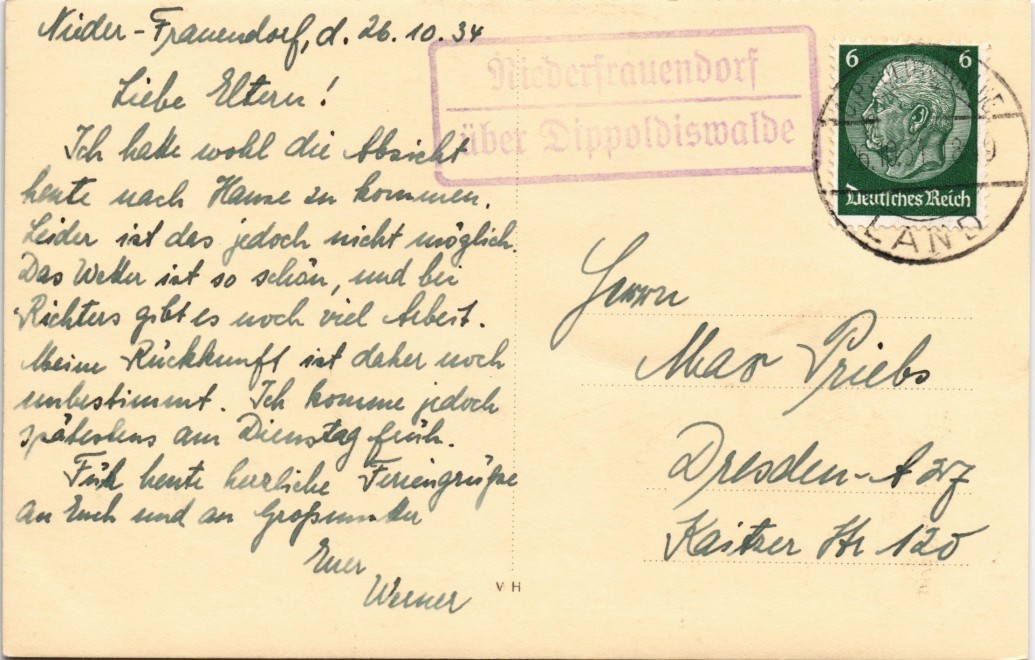 Nieder-Frauendorf, d. 26.10.34
Liebe Eltern!
Ich hatte wohl die Absicht
heute nach Hause zu kommen.
Leider ist das jedoch nicht möglich.
Das Wetter ist so schön, und bei
Richters gibt es noch viel Arbeit.
Meine Rückkunft ist daher noch
unbestimmt. Ich komme jedoch
spätestens am Dienstag früh.
Für heute herzliche Feriengrüße
an Euch und an Großmutter
Euer
Werner
VH
Niederfrauendorf
über Dippoldiswalde
6 6
Deutsches Reich
LAND
Herrn
Max Priebs
Dresden-A
Kaitzer Str 120